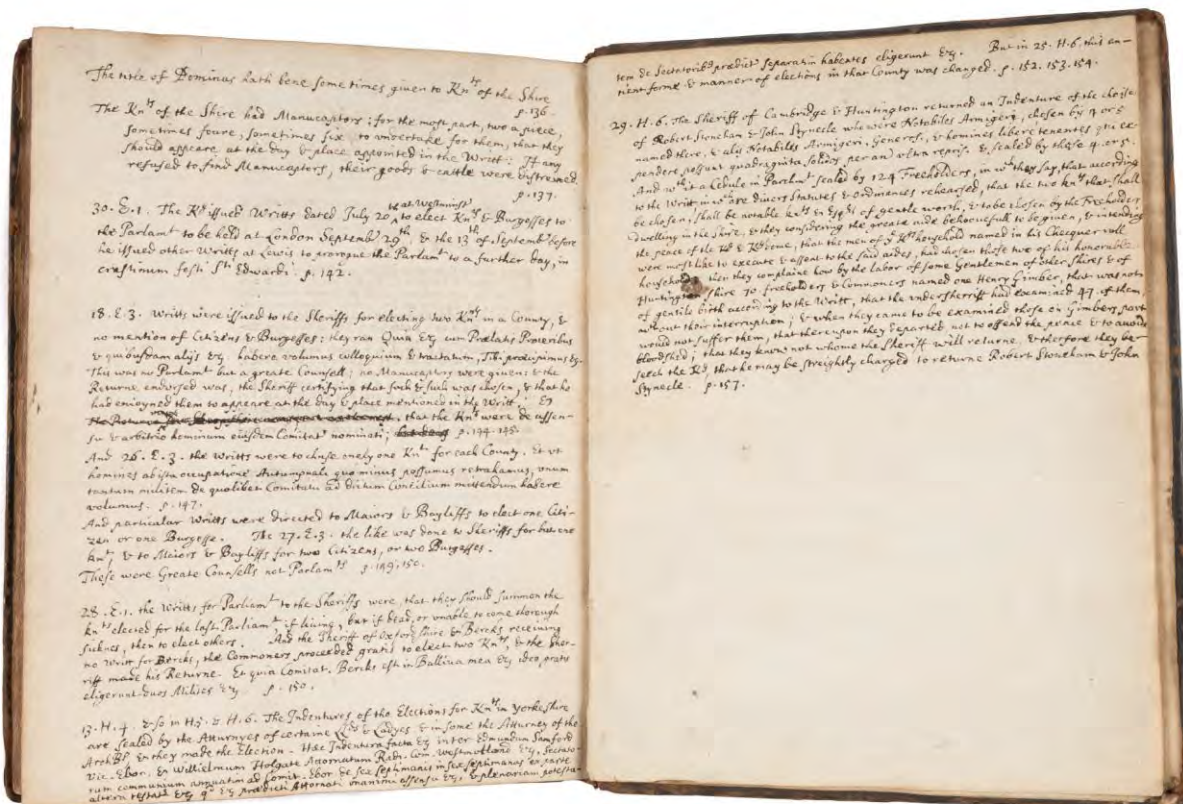 The title of Dominus hath bene some times given to Knts of the Shire
p. 136.
The Knts of the Shire had Manucaptors; for the most part, two a piece,
sometimes foure, sometimes six, to undertake for them, that they
should appeare at the day & place appointed in the Writt: If any
refused to find Manucaptors, their goods & cattle were distreined.
p. 137.
30. E. 1. The Kg issued Writts dated July 20th at Westminstr to elect Knts & Burgesses to
the Parlamt to be held at London Septembr 29th, & the 13th of Septembr before
he issued other Writts at Lewis to prorogue the Parlamt to a further day, in
crastinum festi Sti Edwardi. p. 142.
18. E. 3. Writts were issued to the Sheriffs for electing two Knts in a County, &
no mention of Citizens & Burgesses; they ran Quia &c cum Prælatis Proceribus
& quibusdam alijs &c habere volumus colloquium & tractatum, Tibi præcipimus &c.
This was no Parlamt but a greate Counsell; no Manucaptors were given: & the
Returne endorsed was, the Sheriff certifying that such & such was chosen, & that he
had enjoyned them to appeare at the day & place mentioned in the Writt.
the Returne that the Knts were de assen-
su & arbitrio hominum eiusdem Comitat nominati; p. 144. 145.
And 26. E. 3. the Writts were to chuse onely one Knt for each County. Et ut
homines ab ista occupatione Autumpnali quo minus possumus retrahamus, unum
tantum militem de quolibet Comitatu ad dictum Concilium mittendum habere
volumus. p. 147.
And particular Writts were directed to Maiors & Bayliffs to elect one Citi-
zen or one Burgesse. The 27. E. 3. the like was done to Sheriffs for but one
Knt, & to Maiors & Bayliffs for two Citizens, or two Burgesses.
These were Greate Counsells not Parlamts p. 149. 150.
28. E. 1. the Writts for Parliamt to the Sheriffs were, that they should summon the
Knts elected for the last Parliamt if living, but if dead, or unable to come thorough
sicknes, then to elect others. And the Sheriff of Oxfordshire & Berks receiving
no Writt for Berks, the Commoners proceeded gratis to elect two Knts, & the Sher-
riff made his Returne. Et quia Comitat. Berks est in Balliva mea &c ideo gratis
eligerunt duos Milites &c p. 150.
13. H. 4. & so in H. 5. & H. 6. The Indentures of the Elections for Knts in Yorkeshire
are sealed by the Atturnyes of certaine Lds & Ladyes, & in some the Atturney of the
ArchBp & they made the Election. Hæc Indentura facta &c inter Edmundum Sanford
Vic. Ebor. & Willielmum Holgate Attornatum Radi. Com. Westmorland &c. Sectato-
rum communium annuatim ad Comit. Ebor. de sex septimanis in sex septimanas ex parte
altera testatr &c qd &c prædicti Attornati unanimi assensu &c, & plenariam potesta-
tem de Sectoribus prædict separatim habentes eligerunt &c. But in 25. H. 6. this an-
tient forme & manner of elections in that County was changed. p. 152. 153. 154.
29. H. 6. The Sheriff of Cambridge & Huntington returned an Indenture of the choise
of Robert Stoneham & John Styuecle who were Notabiles Armigeri, chosen by 4 or 5
named there, & alijs Notabiles Armigeri, Generosi, & homines libere tenentes qui ex-
pendere possunt quadraginta solidos per ann ultra repris. & sealed by those 4. or 5.
And with it a Cedule in Parchmt sealed by 124 Freeholders, in wch they say, that according
to the Writt in wch are divers Statutes & ordinances rehearsed, that the two Knts that shall
be chosen, shall be notable Knts & Esqrs of gentle worth, & to be chosen by the Freeholders
dwelling in the Shire, & they considering the greate aide behoovefull to be given, & intending
the peace of the Kg & Kgdome, that the men of ye Kgs household named in his Chequer roll
were most like to execute & assent to the said aides, had chosen those two of his honorable
household, then they complaine how by the labor of some Gentlemen of other Shires & of
Huntington shire 70. freeholders & Commoners named one Henry Gimber, that was not
of gentile birth according to the Writt, that the undersherriff had examined 47. of them,
without their interruption; & when they came to be examined those on Gimbers part
would not suffer them, that thereupon they departed not to offend the peace & to avoide
bloodshed; that they know not whome the Sheriff will returne, & therfore they be-
seech the Kg, that he may be streightly charged to returne Robert Stoneham & John
Styuecle. p. 157.